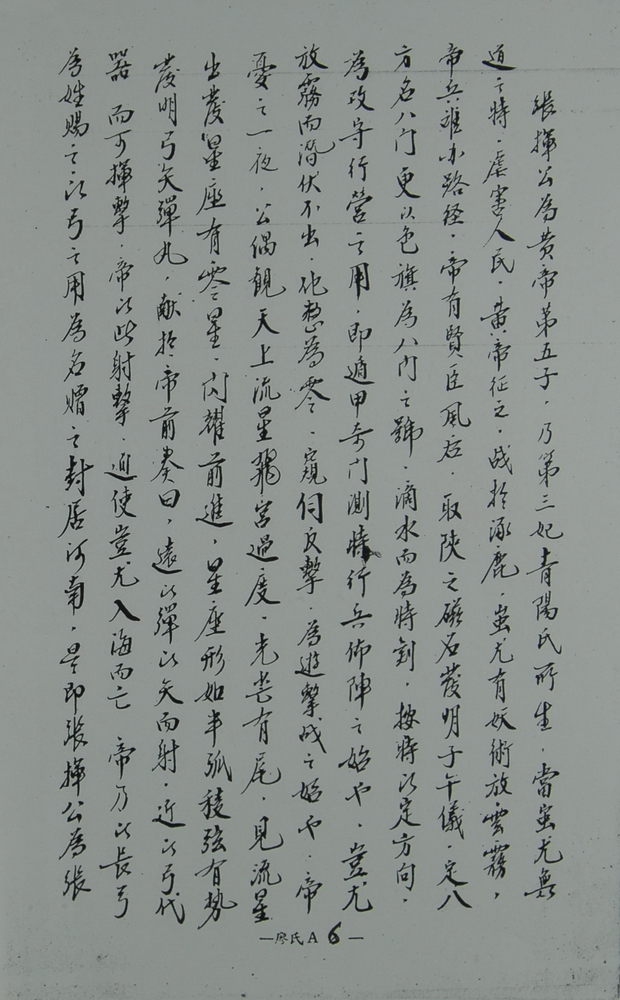 張揮公為黃帝第五子，乃第三妃青陽氏所生，當蚩尤無
道之時，虐害人民，黃帝征之，战於涿鹿，蚩尤有妖術放雲霧，
帝兵难小路径，帝有賢臣風后，取陝之磁石發明子午儀，定八
方名八门更以色旗為八门之號，滴水而為時刻，按時以定方向，
為攻守行營之用，即遁甲奇门測時行兵佈陣之始也，蚩尤
放霧而潜伏不出，化整為零，窺伺反擊，為遊擊战之始也，帝
憂之一夜，公偶観天上流星 宮過度，光芒有尾，見流星
出發星座有零星，闪耀前進，星座形如半弧稜弦有勢
發明弓矢彈丸，献於帝前奏曰，遠以彈以矢而射，近以弓代
器 而可揮擊，帝以此射擊，迫使蚩尤入海而亡 帝乃以長弓
為姓賜之，以弓之用為名贈之封居河南，是即張揮公為張
—廖氏A 6—